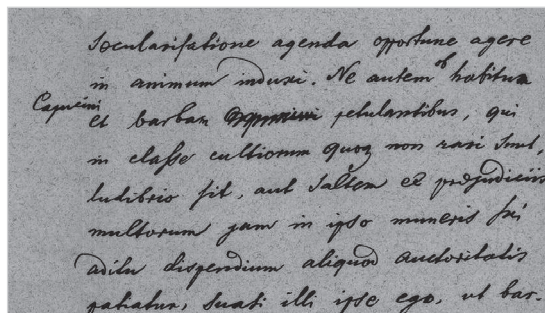 Secularisatione agenda opportune agere
in animum induxi. Ne autem ob habitum
Capucini
et barbam petulantibus, qui
in classe cultiorum quoq non rari sunt,
ludibrio sit, aut saltem ex præjudiciis
multorum jam in ipso muneris sui
aditu dispendium aliquod auctoritatis
patiatur, suasi illi ipse ego, ut bar-